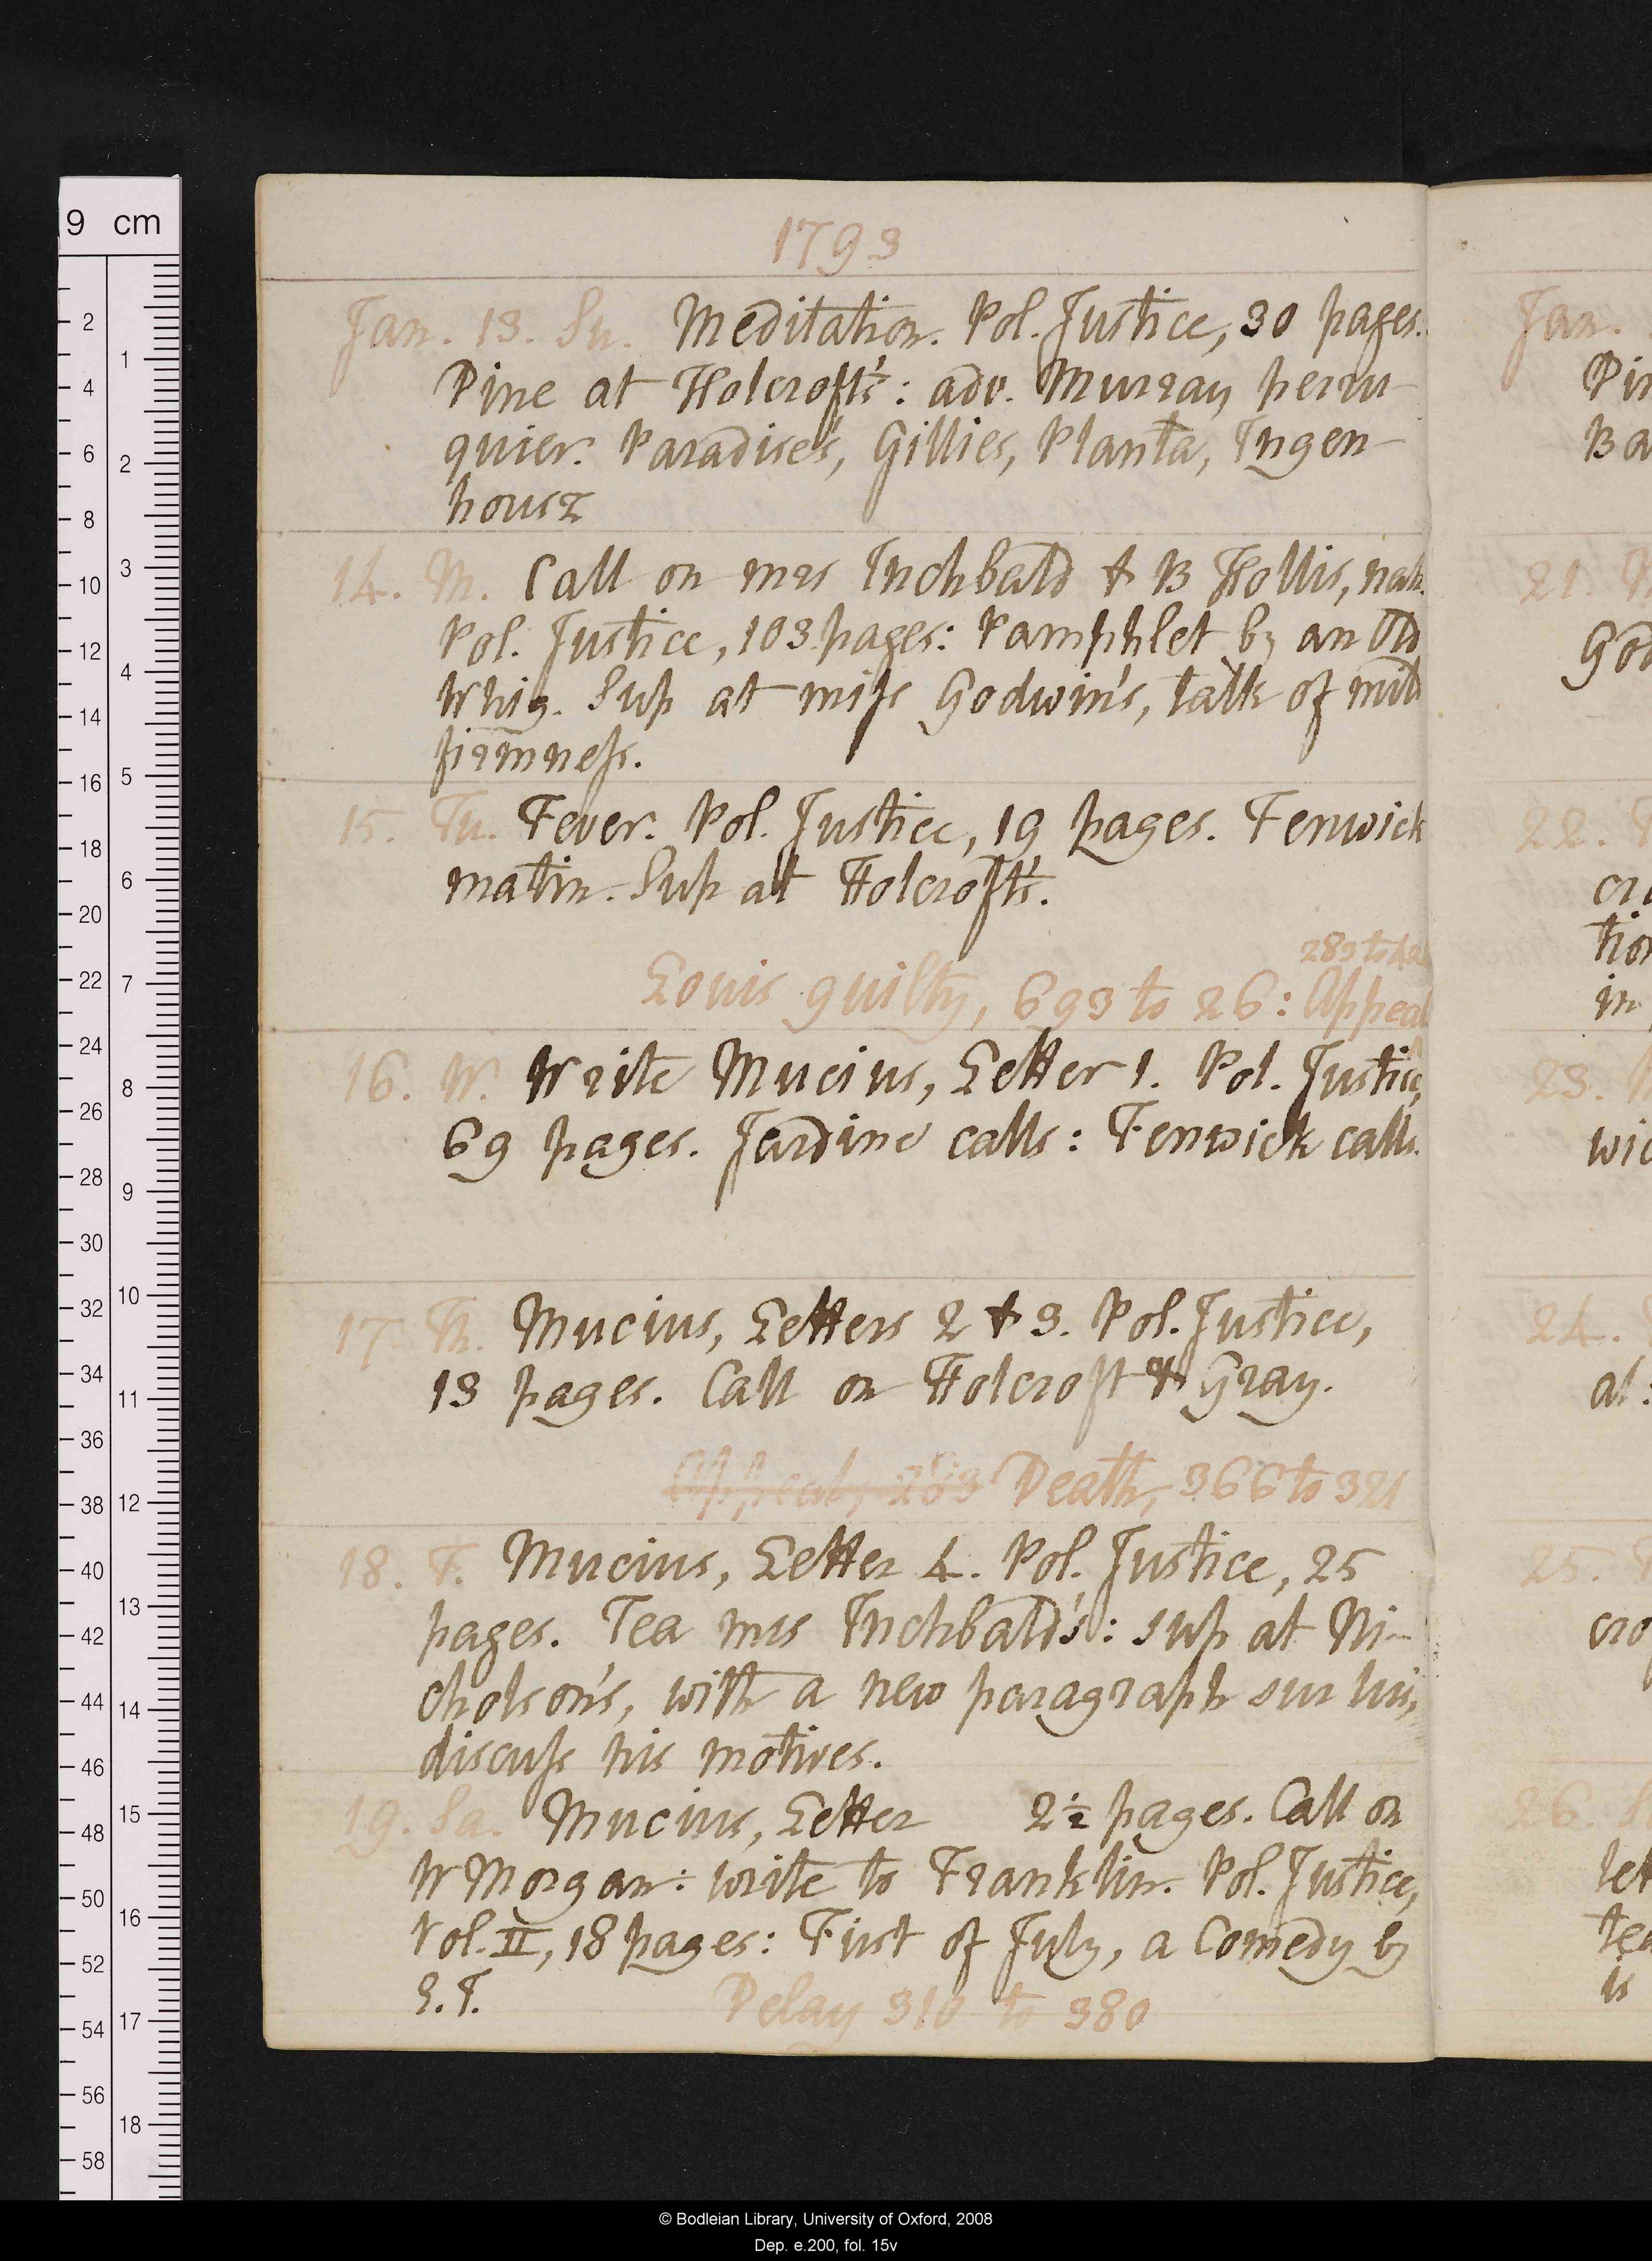 1793
Jan. 13. Su. Meditation. Pol. Justice, 30 pages.
Dine at Holcroft's: adv. Murray perru-
quier. Paradise's, Gillies, Planta, Ingen-
housz
14. M. Call on mrs Inchbald & B Hollis, nah.
Pol. Justice, 103 pages: Pamphlet by an Old
Whig. Sup at miss Godwin's, talk of mild
firmness.
15. Tu. Fever. Pol. Justice, 19 pages. Fenwick
matin. Sup at Holcroft's.
Louis guilty, 693 to 26: Appeal
16. W. Write Mucius, Letter 1. Pol. Justice,
69 pages. Jardine calls: Fenwick calls.
17. Th. Mucius, Letters 2 & 3. Pol. Justice,
13 pages. Call on Holcroft & Gray.
Appeal, 283 Death, 366 to 321
18. F. Mucius, Letter 4. Pol. Justice, 25
pages. Tea mrs Inchbald's: sup at Ni-
cholson's, with a new paragraph sur lui,
discuss his motives.
19. Sa. Mucius, Letter 2½ pages. Call on
W Morgan: write to Franklin. Pol. Justice,
Vol. II, 18 pages: First of July, a Comedy by
S.T. Delay 310 to 380
Jan.
21.
22.
23.
24.
25.
26.
9 cm
© Bodleian Library, University of Oxford, 2008
Dep. e.200, fol. 15v